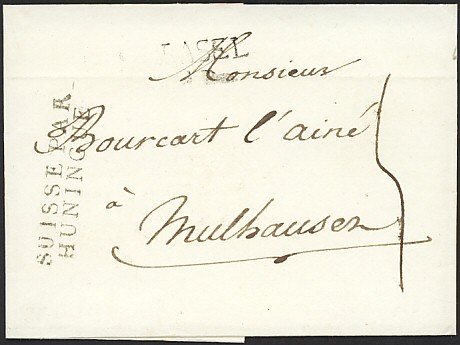 BASEL
Monsieur
Bourcart l'ainé
à
Mulhausen
SUISSE PAR
HUNINGUE